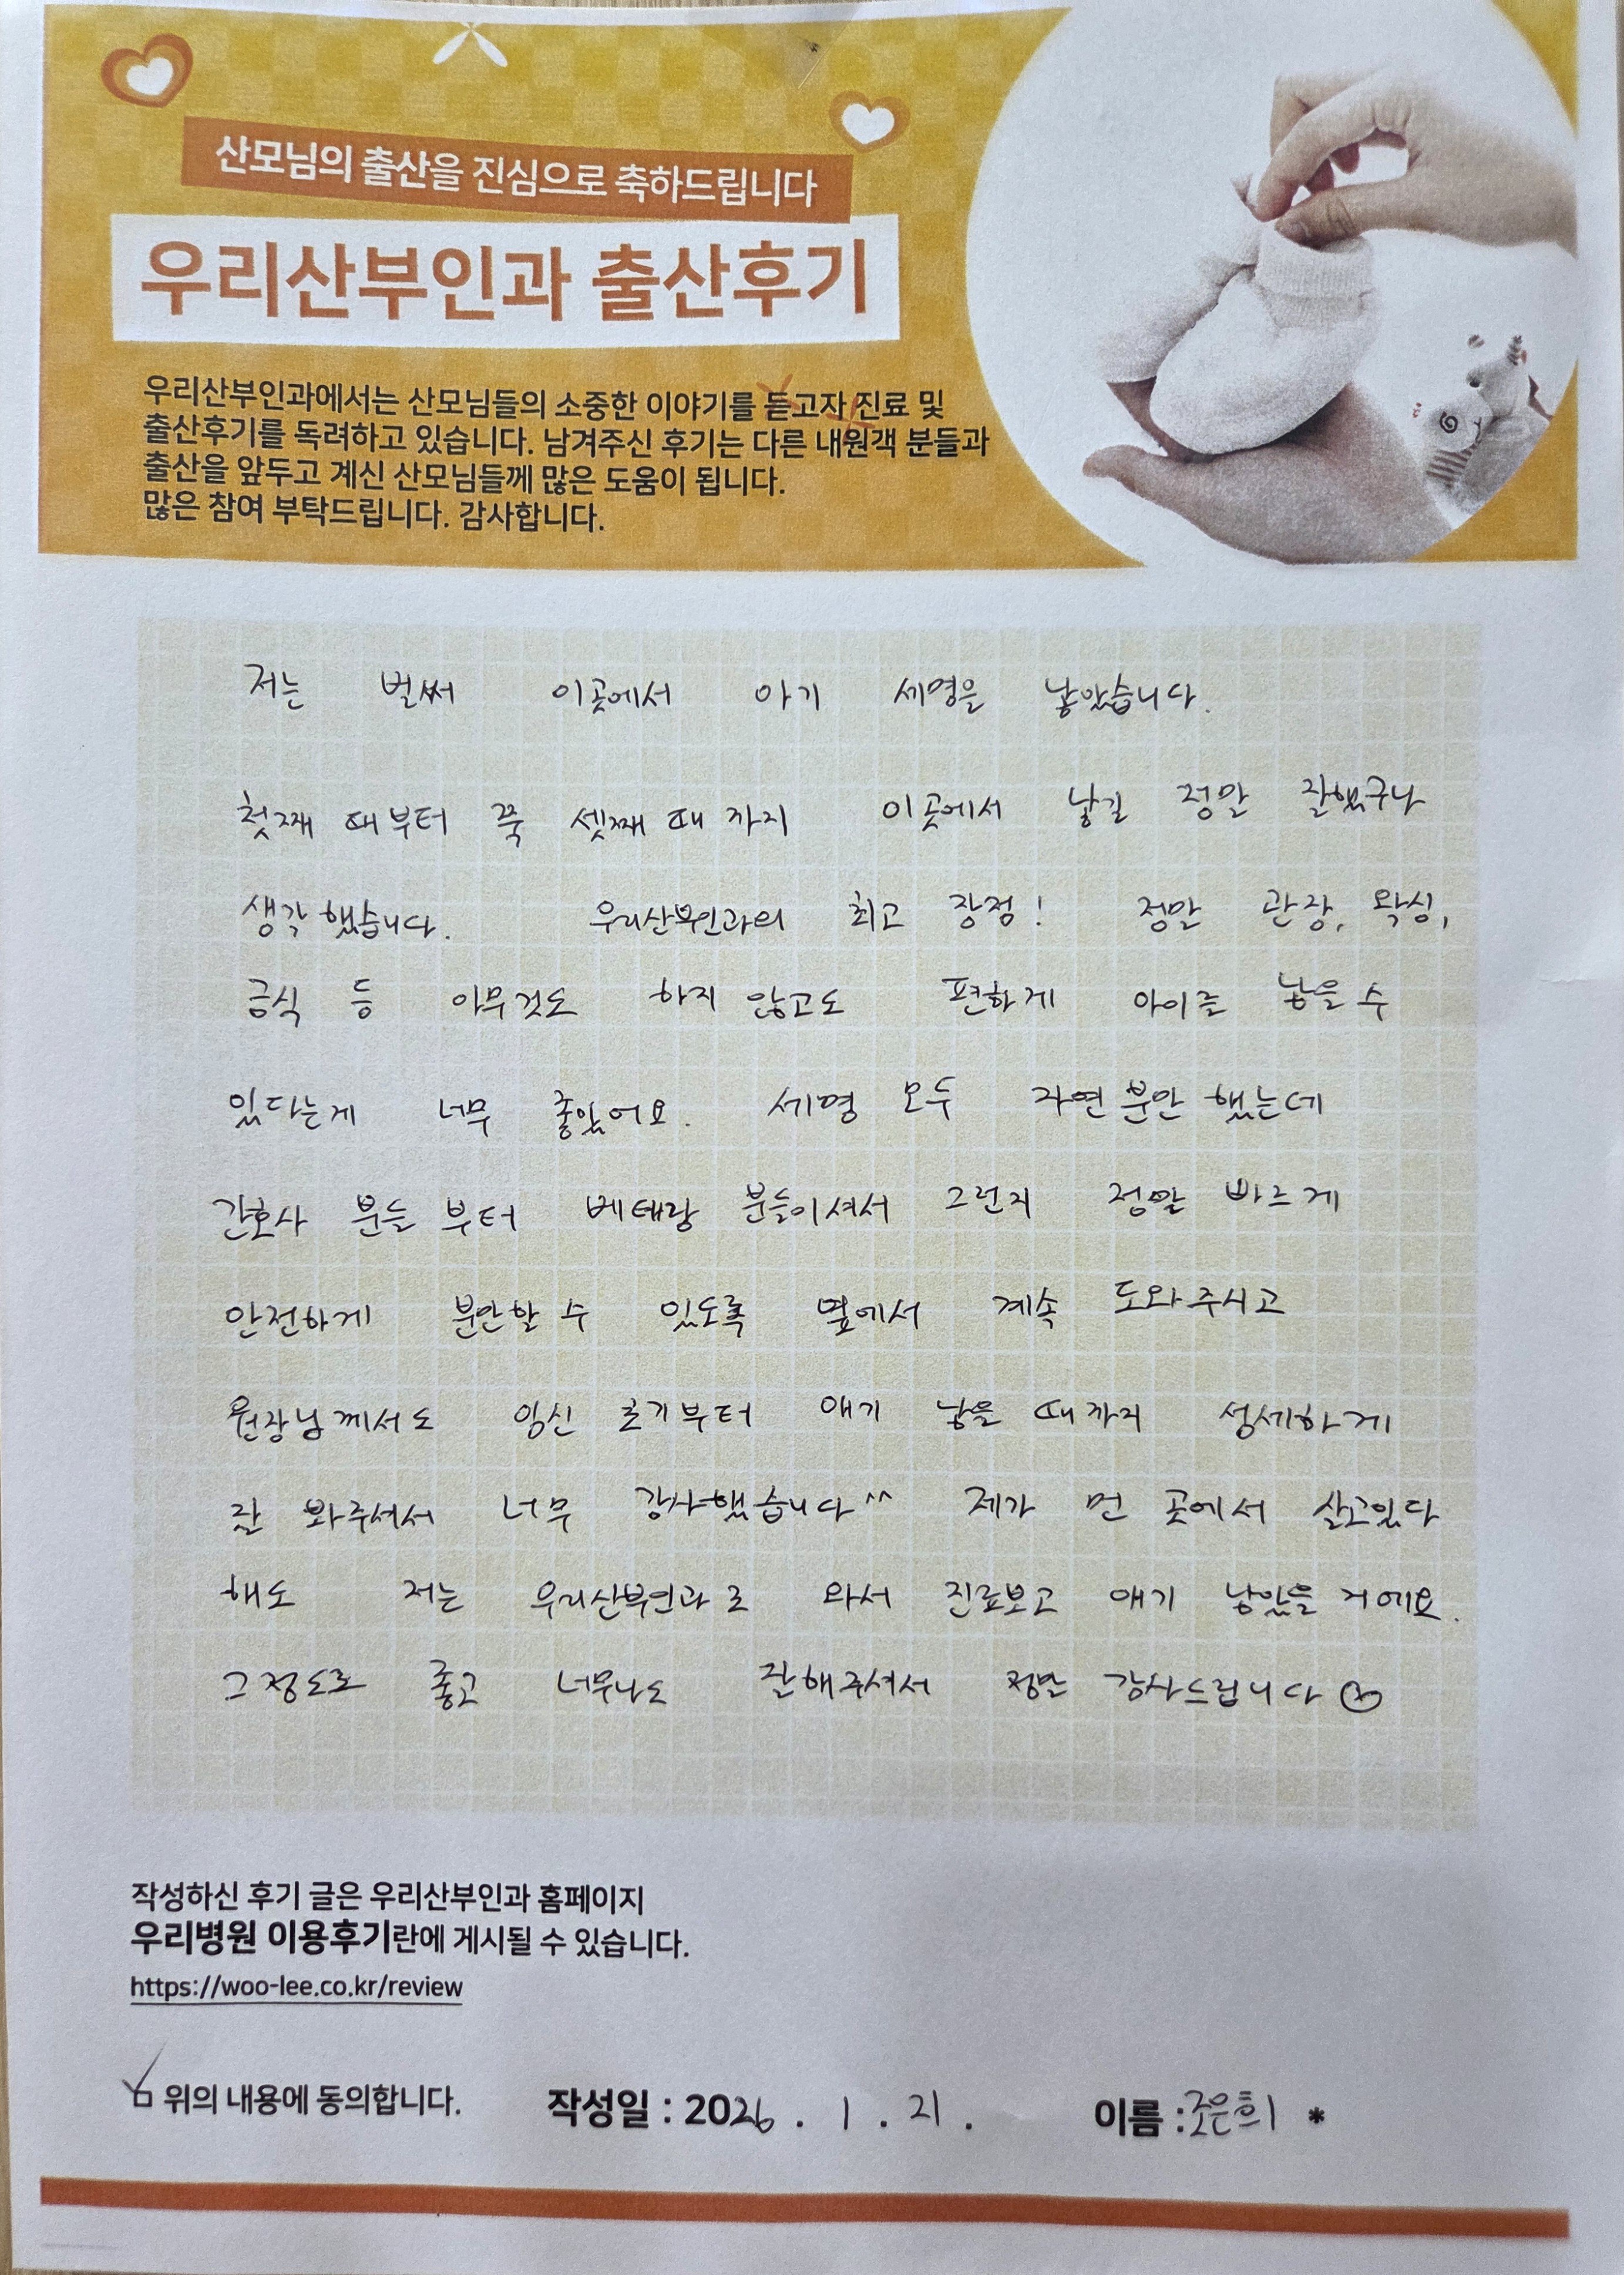 산모님의 출산을 진심으로 축하드립니다
우리산부인과 출산후기
우리산부인과에서는 산모님들의 소중한 이야기를 듣고자 진료 및
출산후기를 독려하고 있습니다. 남겨주신 후기는 다른 내원객 분들과
출산을 앞두고 계신 산모님들께 많은 도움이 됩니다.
많은 참여 부탁드립니다. 감사합니다.
저는 벌써 이곳에서 아기 세명을 낳았습니다.
첫째 때부터 쭉 셋째 때 까지 이곳에서 낳길 정말 잘했구나
생각했습니다. 우리산부인과의 최고 장점! 정말 관장, 왁싱,
금식 등 아무것도 하지 않고도 편하게 아이를 낳을 수
있다는게 너무 좋았어요. 세명 모두 자연분만 했는데
간호사 분들 부터 베테랑 분들이셔서 그런지 정말 빠르게
안전하게 분만할 수 있도록 옆에서 계속 도와주시고
원장님께서도 임신 초기부터 애기 낳을 때까지 섬세하게
잘 봐주셔서 너무 감사했습니다^^ 제가 먼 곳에서 살고있다
해도 저는 우리산부인과로 와서 진료보고 애기 낳았을 거에요.
그정도로 좋고 너무나도 잘해주셔서 정말 감사드립니다
작성하신 후기 글은 우리산부인과 홈페이지
우리병원 이용후기란에 게시될 수 있습니다.
https://woo-lee.co.kr/review
위의 내용에 동의합니다. 작성일 : 2026 . 1 . 21 . 이름 : 조은희 *